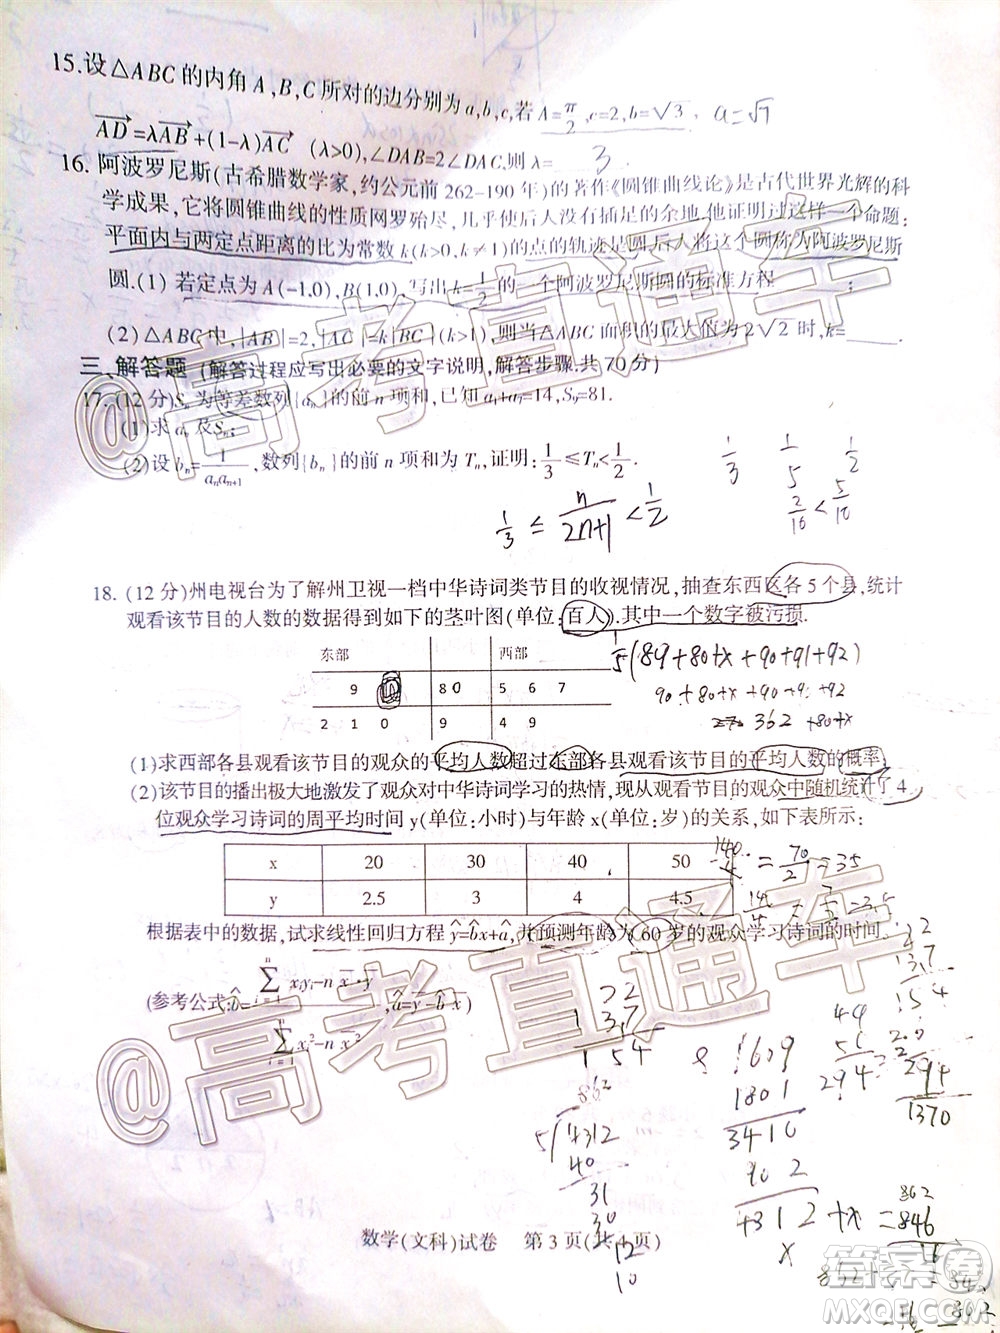 15.设△ABC的内角A,B,C所对的边分别为a,b,c,若A=π/2,c=2,b=√3, a=√7
AD=λAB+(1-λ)AC (λ>0),∠DAB=2∠DAC,则λ= 3 .
16.阿波罗尼斯(古希腊数学家,约公元前262-190年)的著作《圆锥曲线论》是古代世界光辉的科
学成果,它将圆锥曲线的性质网罗殆尽,几乎使后人没有插足的余地,他证明过这样一个命题:
平面内与两定点距离的比为常数k(k>0,k≠1)的点的轨迹是圆,后人将这个圆称为阿波罗尼斯
圆.(1)若定点为A(-1,0),B(1,0),写出k=1/2的一个阿波罗尼斯圆的标准方程 ;
(2)△ABC中,|AB|=2,|AC|=k|BC|(k>1),则当△ABC面积的最大值为2√2时,k=
三、解答题(解答过程应写出必要的文字说明,解答步骤.共70分)
17.(12分)Sn为等差数列{an}的前n项和,已知a1+a7=14,S9=81.
(1)求an及Sn;
(2)设bn=1/(an an+1),数列{bn}的前n项和为Tn,证明:1/3≤Tn<1/2.
1/3 1/5 1/2
2/10<5/10
1/3≤n/(2n+1)<1/2
18.(12分)州电视台为了解州卫视一档中华诗词类节目的收视情况,抽查东西区各5个县,统计
观看该节目的人数的数据得到如下的茎叶图(单位:百人).其中一个数字被污损.
东部 西部
9 8 0 5 6 7
2 1 0 9 4 9
1/5(89+80+x+90+91+92)
90+80+x+90+91+92
362+80+x
(1)求西部各县观看该节目的观众的平均人数超过东部各县观看该节目的平均人数的概率.
(2)该节目的播出极大地激发了观众对中华诗词学习的热情,现从观看节目的观众中随机统计了4
位观众学习诗词的周平均时间y(单位:小时)与年龄x(单位:岁)的关系,如下表所示:
x 20 30 40 50
y 2.5 3 4 4.5
140/4=70/2=35
根据表中的数据,试求线性回归方程ŷ=b̂x+â,并预测年龄为60岁的观众学习诗词的时间.
(参考公式:b̂=(∑xiyi-n x·y)/(∑xi²-n x²),â=y-b̂x)
154
862
5)4312
40
31
30
12
10
1609
1801
3410
902
4312+x
294
1370
862
846
16
数学(文科)试卷 第3页(共4页)
@高考直通车
@高考直通车
答案圈
MXQE.COM